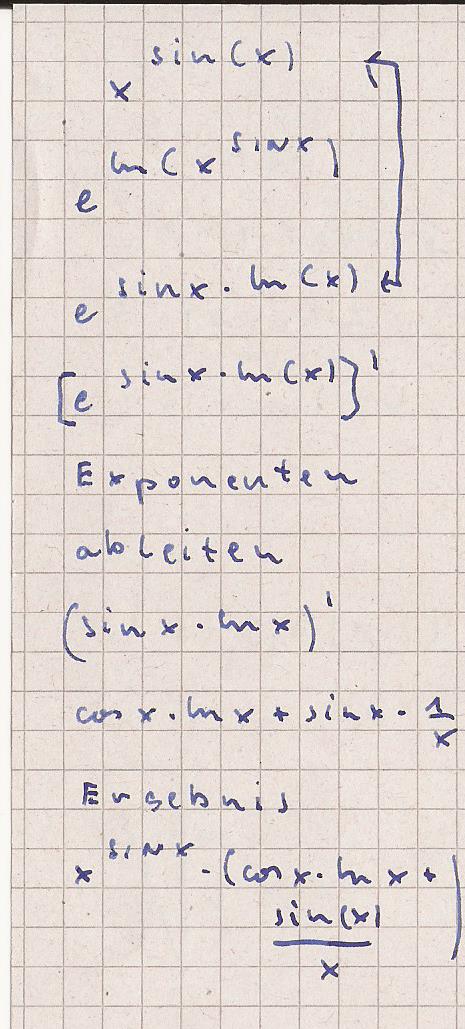 x^sin(x)
e^ln(x^sinx)
e^sinx·ln(x)
[e^sinx·ln(x)]'
Exponenten
ableiten
(sinx·lnx)'
cosx·lnx+sinx·1/x
Ergebnis
x^sinx·(cosx·lnx+
sin(x)/x)